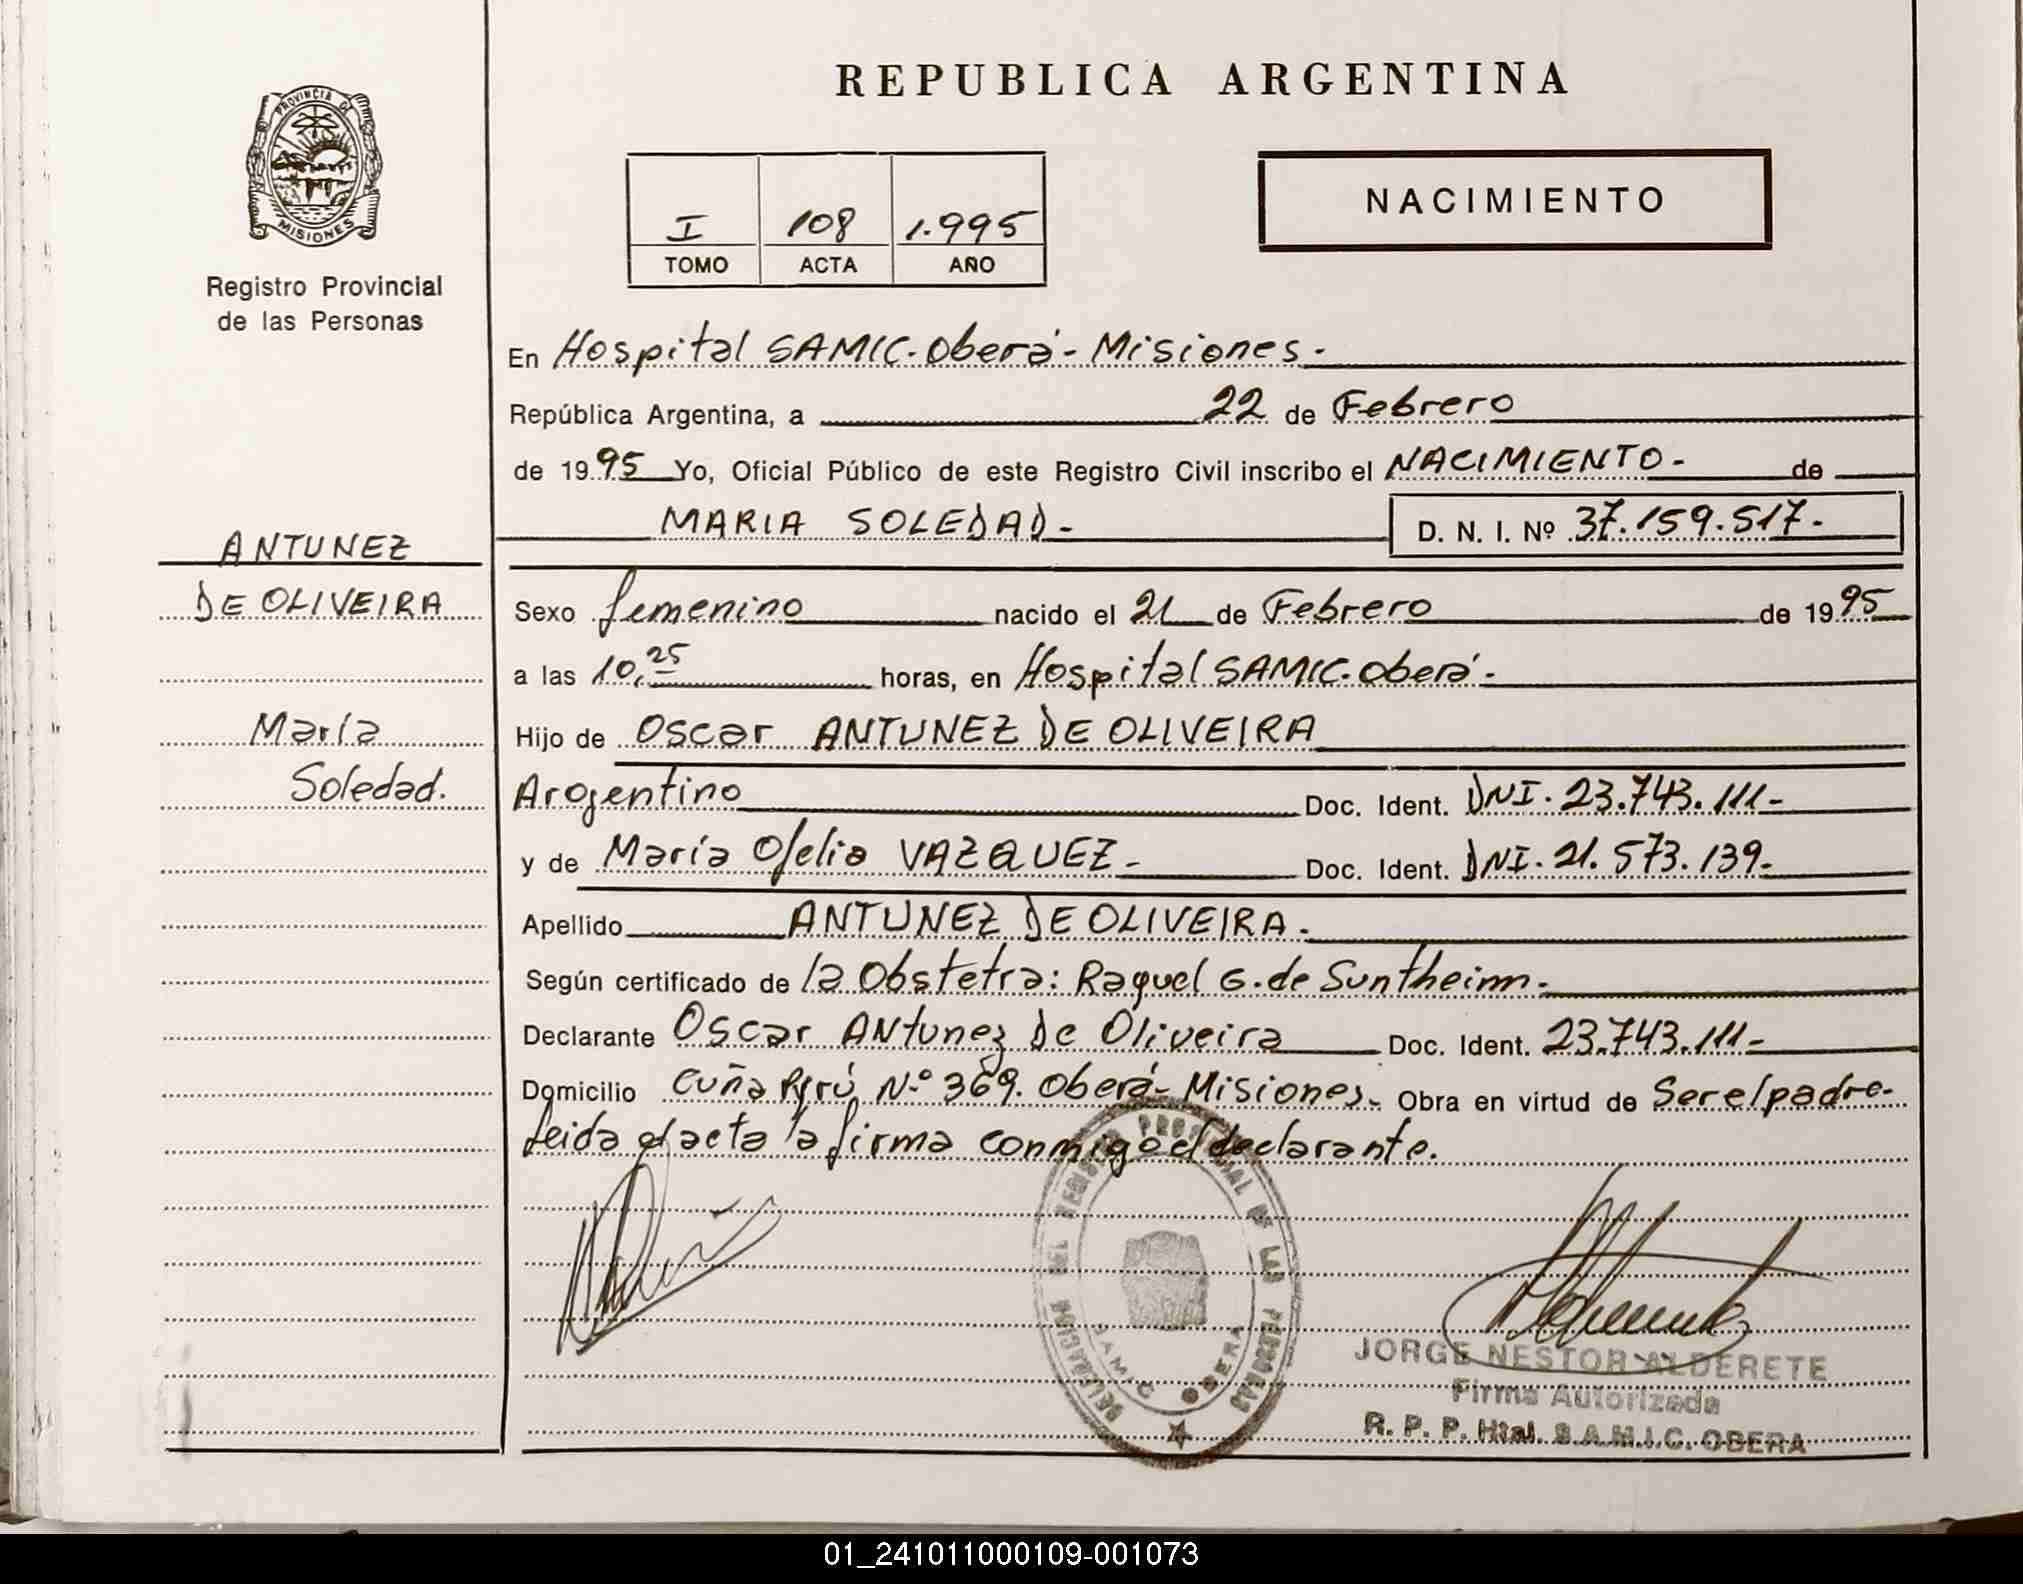 REPUBLICA ARGENTINA
PROVINCIA D
MISIONES
Registro Provincial
de las Personas
I 108 1.995
TOMO ACTA AÑO
NACIMIENTO
En Hospital SAMIC. Oberá - Misiones -
República Argentina, a 22 de Febrero
de 1995 Yo, Oficial Público de este Registro Civil inscribo el NACIMIENTO - de
MARIA SOLEDAD - D. N. I. Nº 37.159.517.-
ANTUNEZ
DE OLIVEIRA
María
Soledad.
Sexo femenino nacido el 21 de Febrero de 1995
a las 10,25 horas, en Hospital SAMIC. Oberá -
Hijo de Oscar ANTUNEZ DE OLIVEIRA
Argentino Doc. Ident. DNI. 23.743.111-
y de María Ofelia VAZQUEZ - Doc. Ident. DNI. 21.573.139-
Apellido ANTUNEZ DE OLIVEIRA.
Según certificado de la Obstetra: Raquel G. de Suntheim -
Declarante Oscar ANtunez De Oliveira Doc. Ident. 23.743.111-
Domicilio Cuña Pirú N.º 369. Oberá - Misiones - Obra en virtud de Ser el padre -
Leida el acta la firma conmigo el declarante.
DELEGACION DEL REGISTRO PROVINCIAL DE LAS PERSONAS
SAMIC OBERA
JORGE NESTOR ALDERETE
Firma Autorizada
R. P. P. Htal. S.A.M.I.C. OBERA
01_241011000109-001073